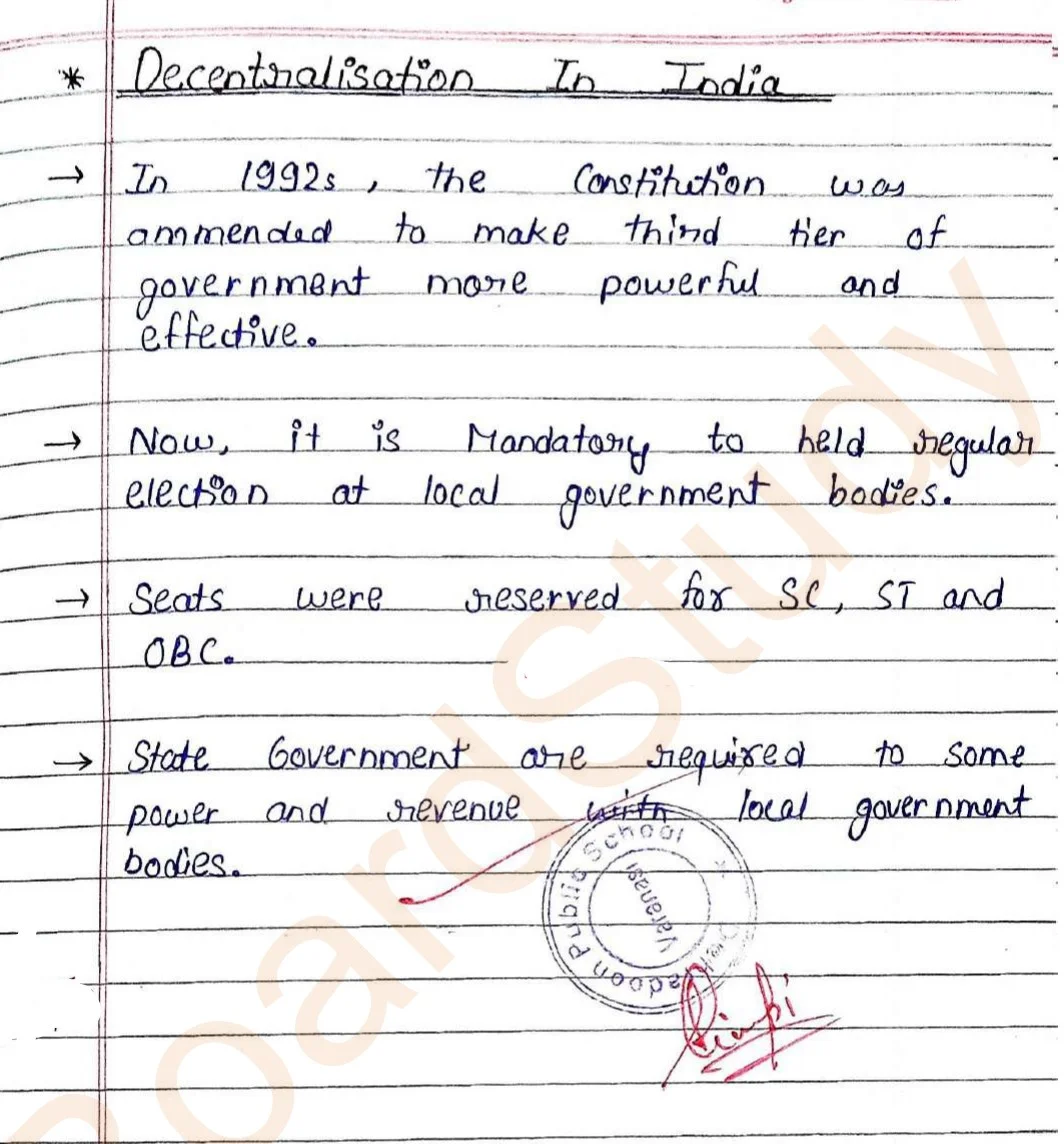 * Decentralisation In India
→ In 1992s, the Constitution was
ammended to make third tier of
government more powerful and
effective.
→ Now, it is Mandatory to held regular
election at local government bodies.
→ Seats were reserved for SC, ST and
OBC.
→ State Government are required to some
power and revenue with local government
bodies.
Dehradoon Public School *
Varanasi
BoardStudy